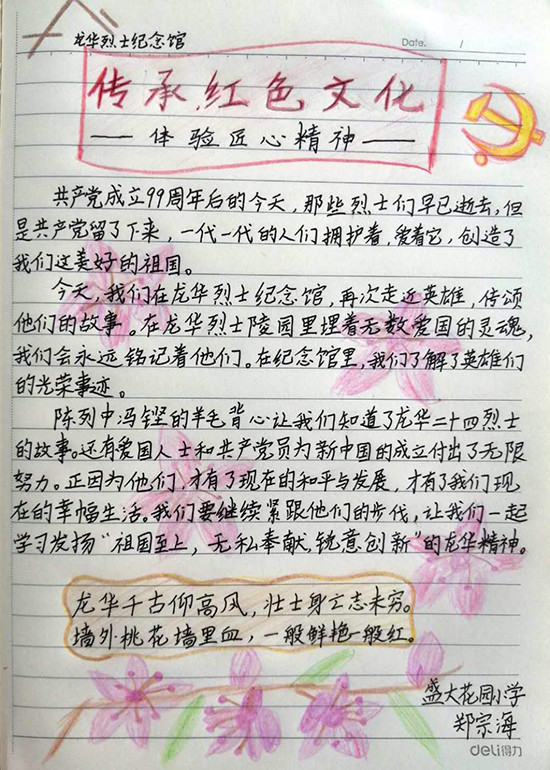 龙华烈士纪念馆
Date. /
传承红色文化
——体验匠心精神——
共产党成立99周年后的今天，那些烈士们早已逝去，但
是共产党留了下来，一代一代的人们拥护着，爱着它，创造了
我们这美好的祖国。
今天，我们在龙华烈士纪念馆，再次走近英雄，传颂
他们的故事。在龙华烈士陵园里埋着无数爱国的灵魂，
我们会永远铭记着他们。在纪念馆里，我们了解了英雄们
的光荣事迹。
陈列中冯铿的羊毛背心让我们知道了龙华二十四烈士
的故事。还有爱国人士和共产党员为新中国的成立付出了无限
努力。正因为他们，才有了现在的和平与发展，才有了我们现
在的幸福生活。我们要继续紧跟他们的步伐，让我们一起
学习发扬“祖国至上，无私奉献，锐意创新”的龙华精神。
龙华千古仰高风，壮士身亡志未穷。
墙外桃花墙里血，一般鲜艳一般红。
盛大花园小学
郑宗海
deli得力